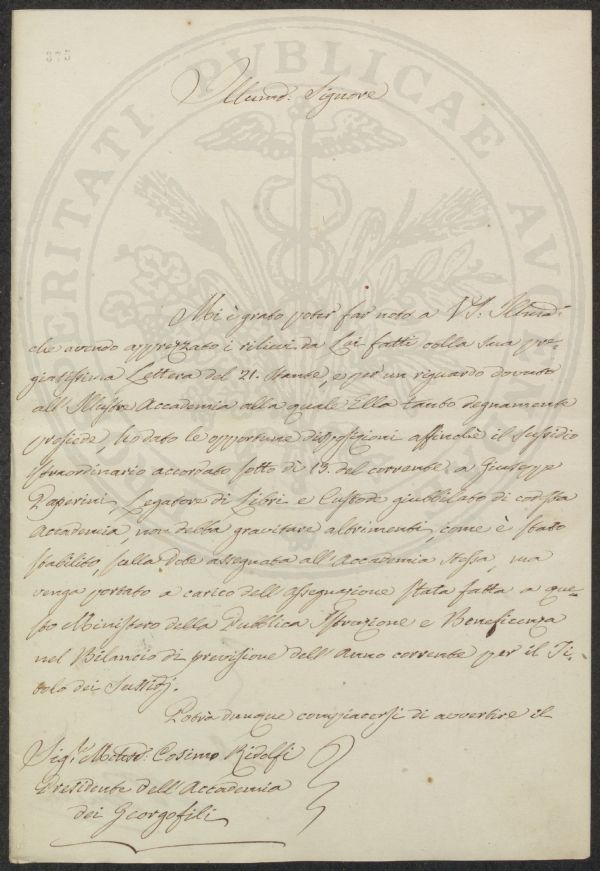 375
Illumo. Signore
Mi è grato poter far noto a V.S. Illma:
che avendo apprezzato i rilievi da Lei fatti colla sua pre-
giatissima Lettera del 21. stante, e per un riguardo dovuto
all'Illustre Accademia alla quale Ella tanto degnamente
presiede, ho dato le opportune disposizioni affinchè il sussidio
straordinario accordato sotto dì 13. del corrente a Giuseppe
Paperini Legatore di Libri e Custode giubbilato di codesta
Accademia non debba gravitare altrimenti, come è stato
stabilito, sulla Dote assegnata all'Accademia stessa, ma
venga portato a carico dell'assegnazione stata fatta a que-
sto Ministero della Pubblica Istruzione e Beneficenza
nel Bilancio di previsione dell'Anno corrente per il Ti-
tolo dei Sussidj.
Potrà dunque compiacersi di avvertire il
Sigre. Cosimo Ridolfi
Presidente dell'Accademia
dei Georgofili
VERITATI PUBLICAE AUGENDAE